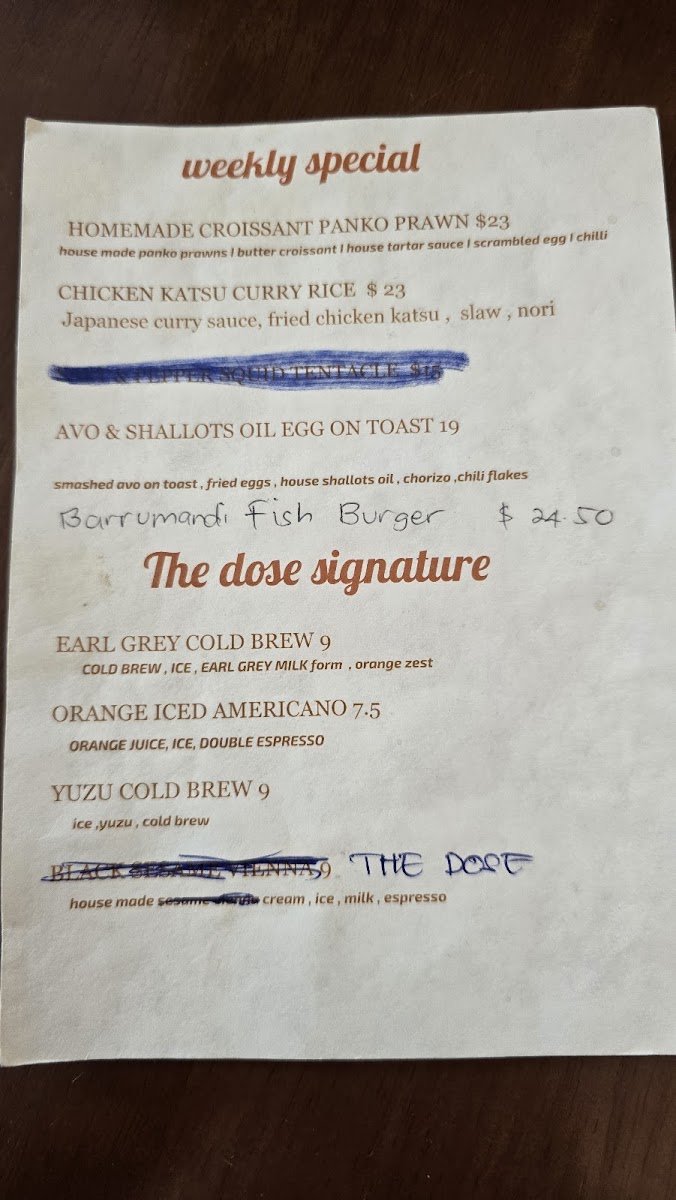 weekly special
HOMEMADE CROISSANT PANKO PRAWN $23
house made panko prawns I butter croissant I house tartar sauce I scrambled egg I chilli
CHICKEN KATSU CURRY RICE $ 23
Japanese curry sauce, fried chicken katsu , slaw , nori
& PEPPER SQUID TENTACLE $15
AVO & SHALLOTS OIL EGG ON TOAST 19
smashed avo on toast , fried eggs , house shallots oil , chorizo ,chili flakes
Barrumandi Fish Burger $ 24.50
The dose signature
EARL GREY COLD BREW 9
COLD BREW , ICE , EARL GREY MILK form , orange zest
ORANGE ICED AMERICANO 7.5
ORANGE JUICE, ICE, DOUBLE ESPRESSO
YUZU COLD BREW 9
ice ,yuzu , cold brew
BLACK SESAME VIENNA 9 THE DOSE
house made sesame cream , ice , milk , espresso